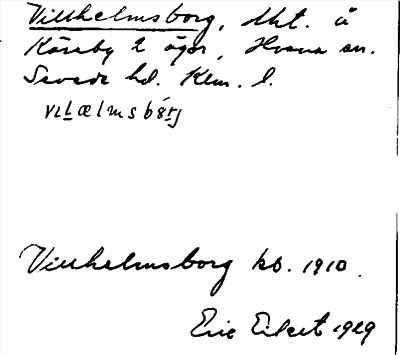 Villhelmsborg, lht. å
Kåreby 2 ägor, Hvena sn.
Sevede hd. Klm. l.
vɩlælmsbǒrj
Villhelmsborg kb. 1910.
Eric Eilert 1929